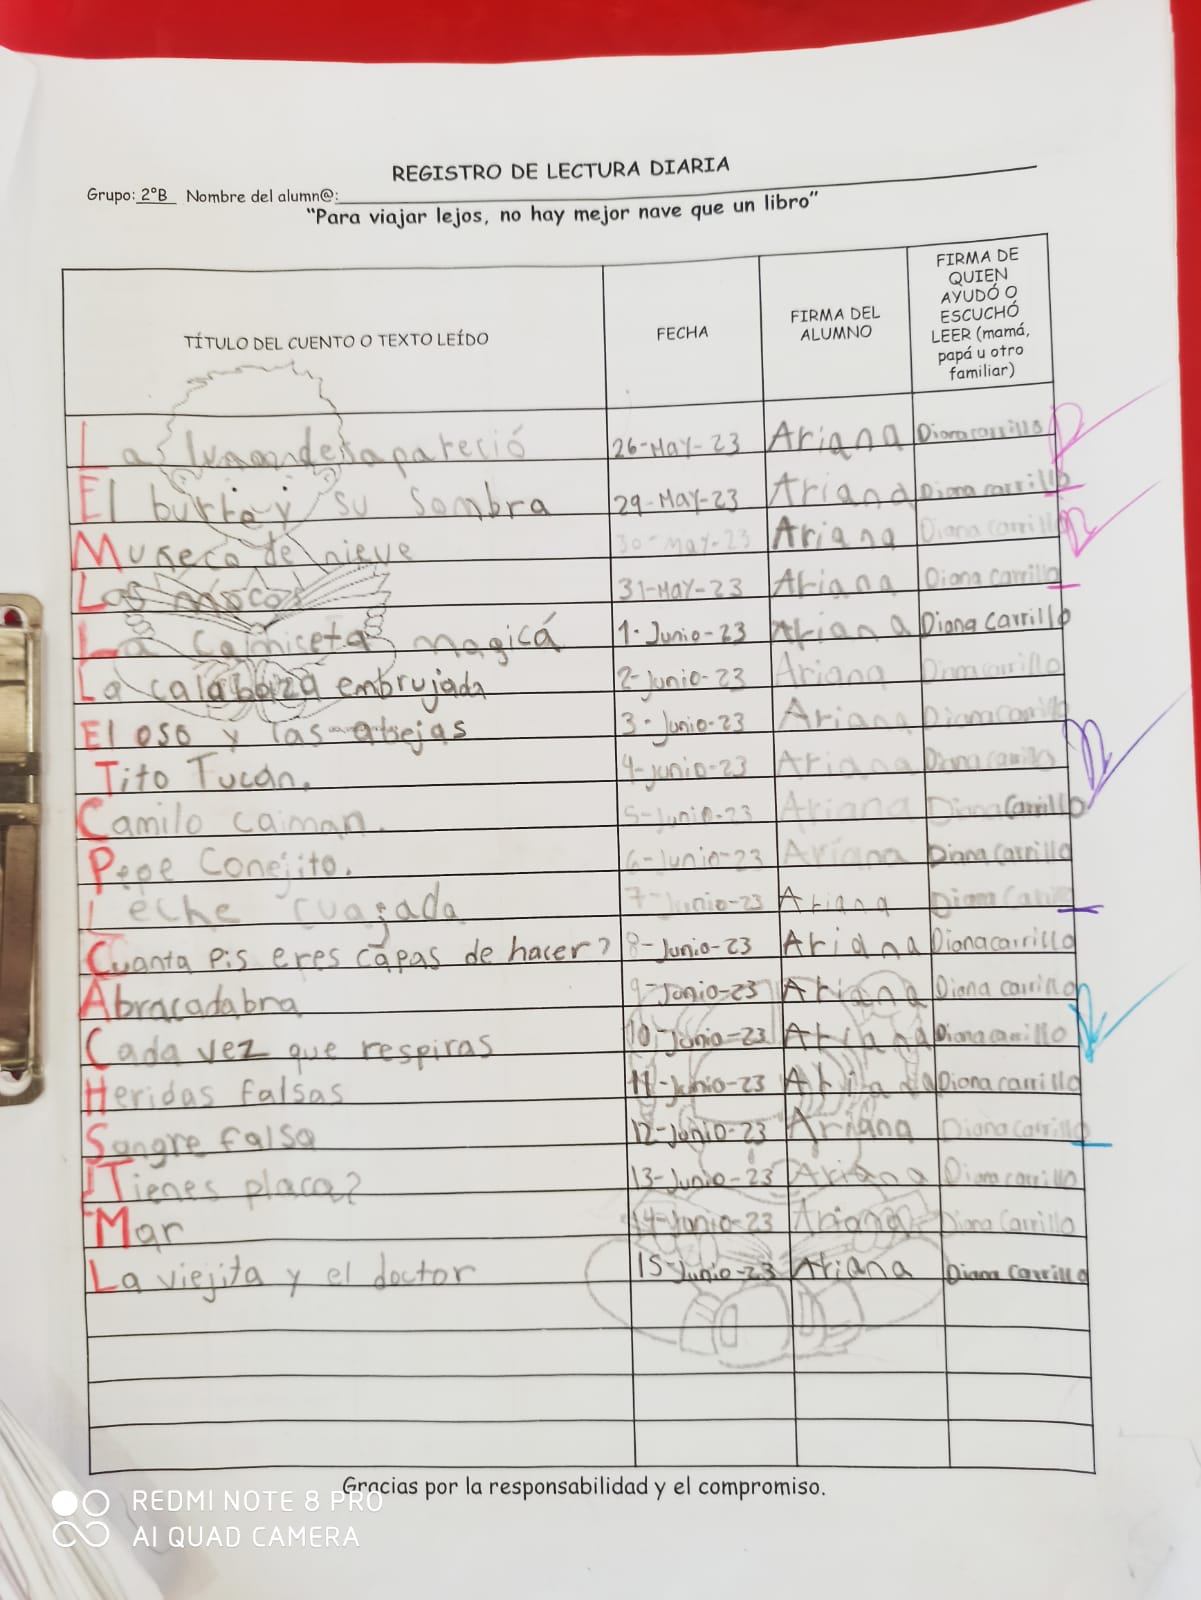 REGISTRO DE LECTURA DIARIA
Grupo: 2°B Nombre del alumn@:
"Para viajar lejos, no hay mejor nave que un libro"
TÍTULO DEL CUENTO O TEXTO LEÍDO FECHA FIRMA DEL ALUMNO FIRMA DE QUIEN AYUDÓ O ESCUCHÓ LEER (mamá, papá u otro familiar)
La luna desapareció 26-May-23 Ariana Diana carrillo
El burro y su sombra 29-May-23 Ariana Diana carrillo
Muñeco de nieve 30-May-23 Ariana Diana carrillo
Los mocos 31-May-23 Ariana Diana Carrillo
La Camiseta magicá 1-Junio-23 Ariana Diana Carrillo
La calabaza embrujada 2-junio-23 Ariana Diana carrillo
El oso y las abejas 3-Junio-23 Ariana Diana carrillo
Tito Tucán. 4-junio-23 Ariana Diana carrillo
Camilo caiman. 5-Junio-23 Ariana Diana Carrillo
Pepe Conejito. 6-Junio-23 Ariana Diana Carrillo
Leche cuajada 7-Junio-23 Ariana Diana
Cuanta pis eres capas de hacer? 8-Junio-23 Ariana Diana carrillo
Abracadabra 9-Junio-23 Ariana Diana carrillo
Cada vez que respiras 10-Junio-23 Ariana Diana carrillo
Heridas falsas 11-Junio-23 Ariana Diana carrillo
Sangre falsa 12-Junio-23 Ariana Diana carrillo
¿Tienes placa? 13-Junio-23 Ariana Diana carrillo
Mar 14-Junio-23 Ariana Diana Carrillo
La viejita y el doctor 15-Junio-23 Ariana Diana Carrillo
Gracias por la responsabilidad y el compromiso.
REDMI NOTE 8 PRO
AI QUAD CAMERA